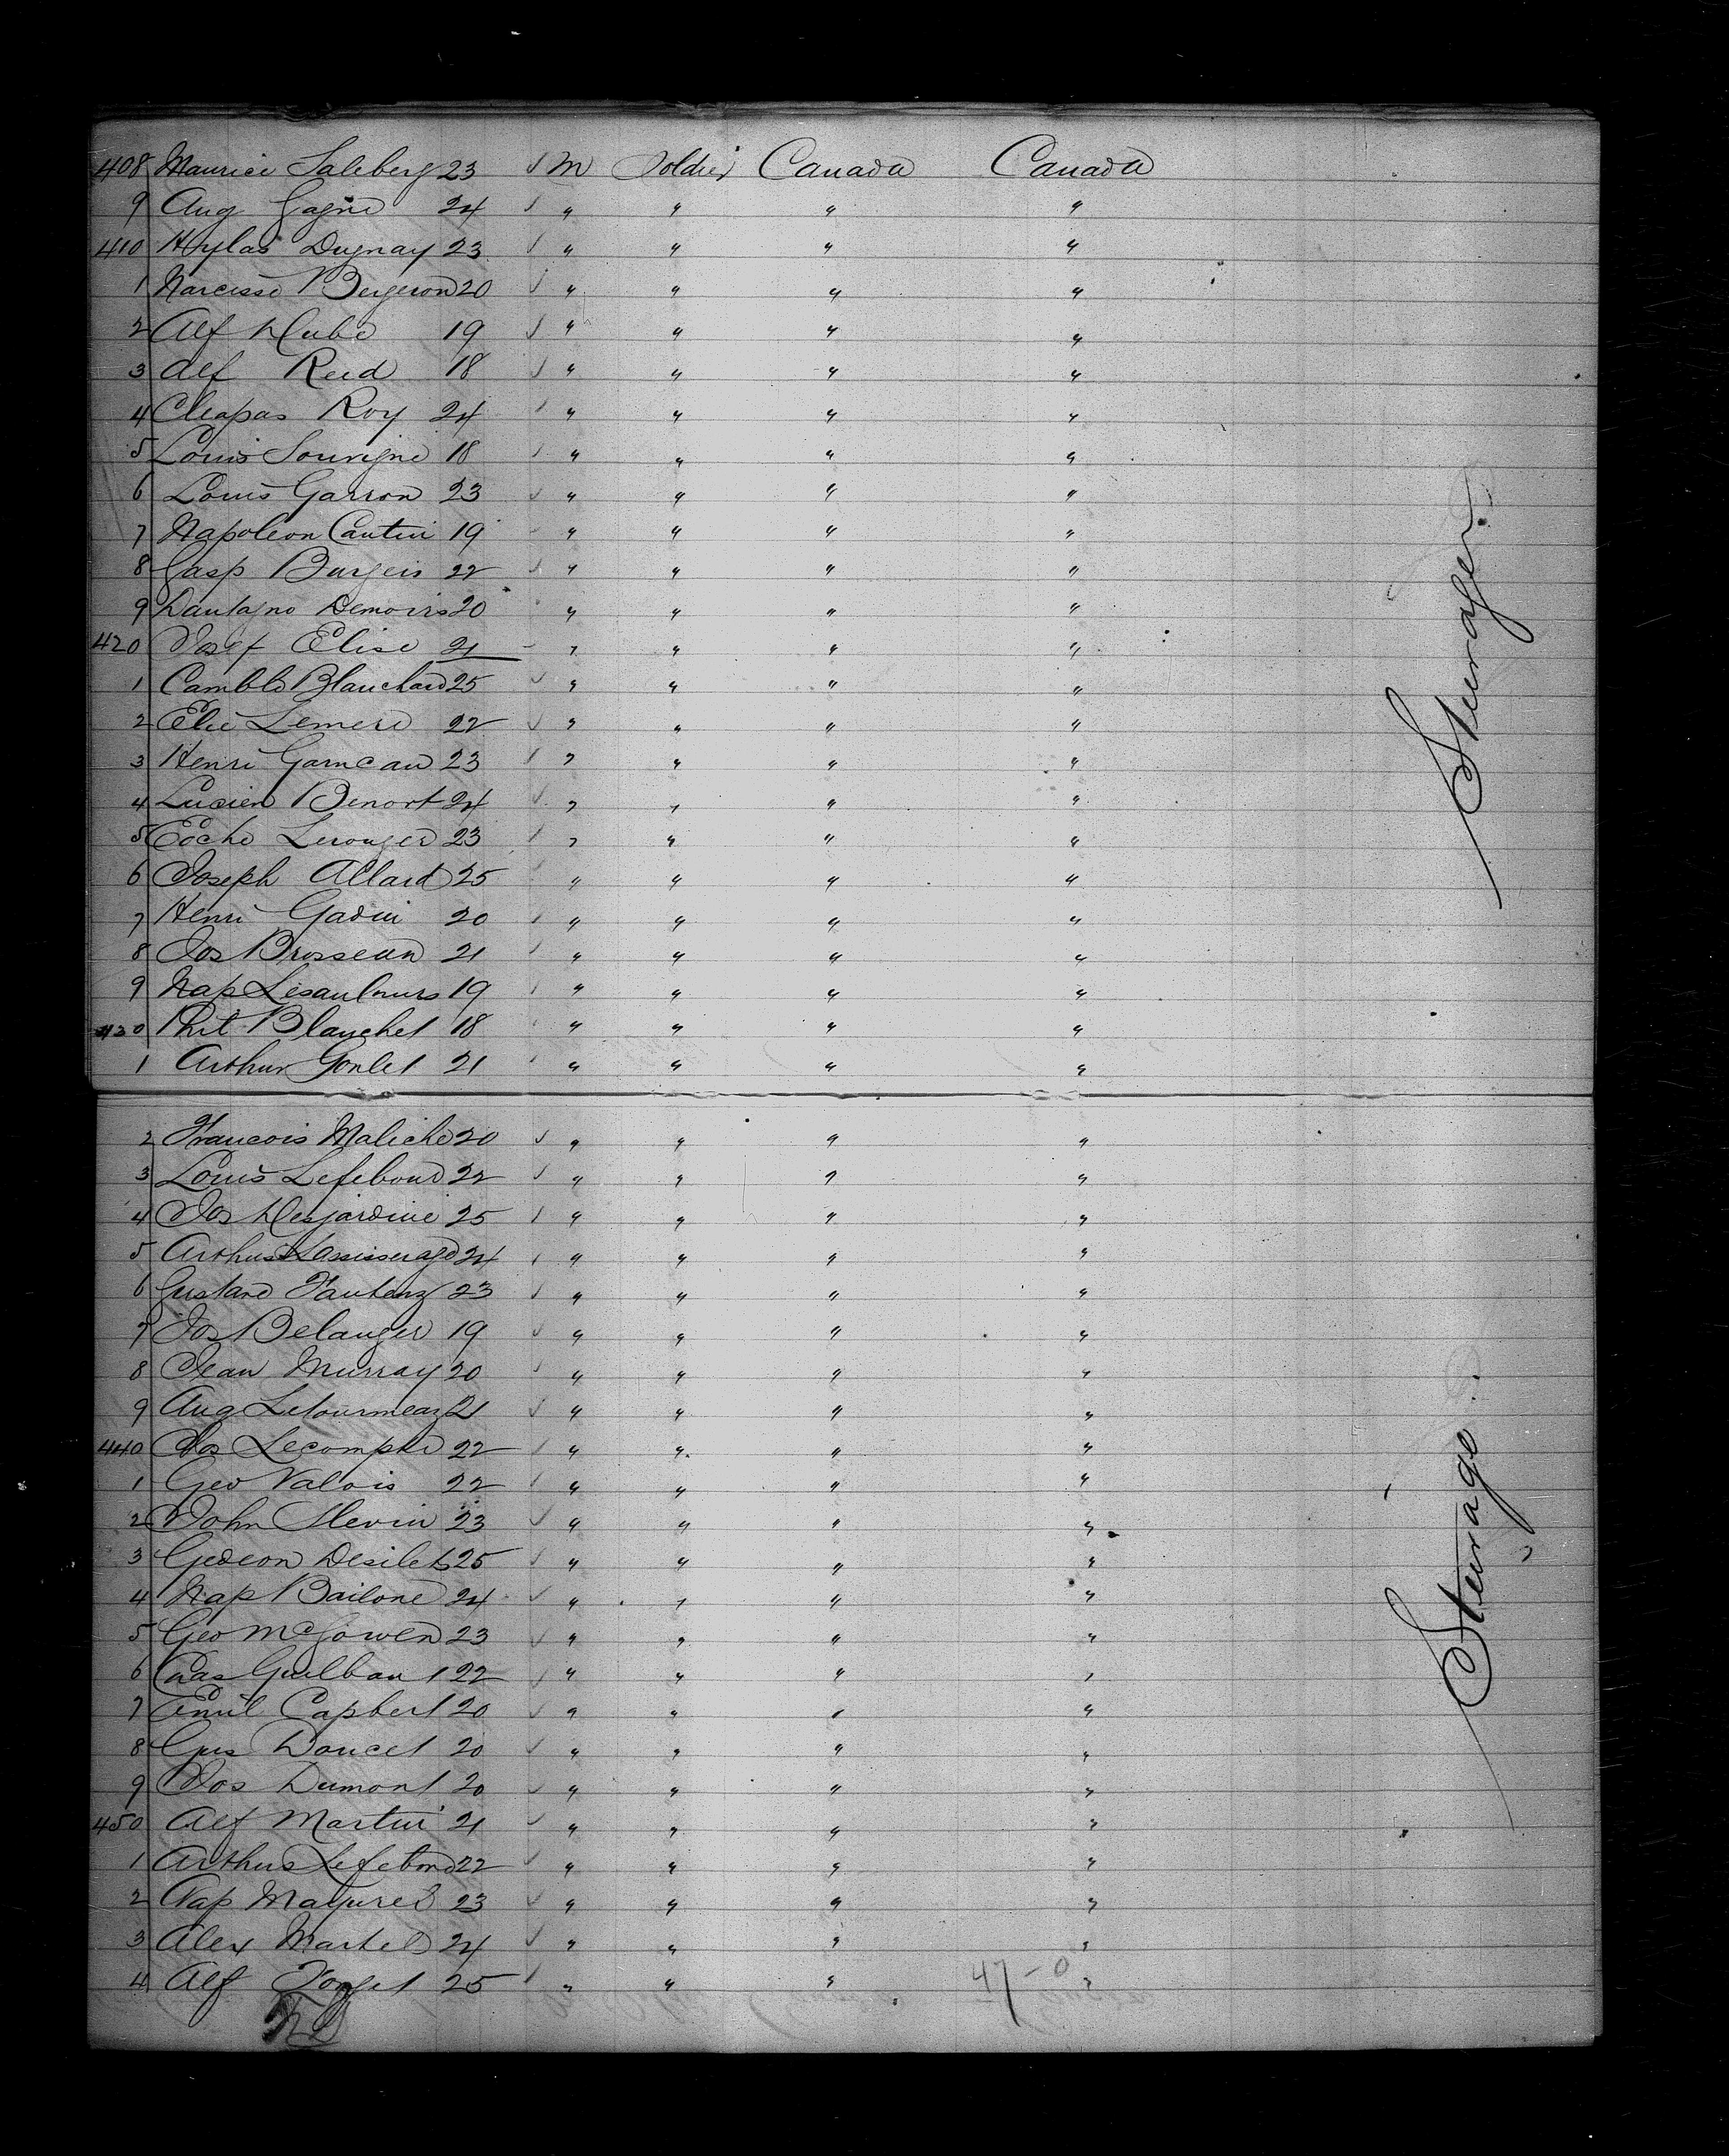 408 Maurice Saleberg 23 ✓ M Soldier Canada Canada
9 Aug Gagne 24 ✓ " " " "
410 Hylas Dugnay 23 ✓ " " " "
1 Narcisse Bergeron 20 ✓ " " " "
2 Alf Dube 19 ✓ " " " "
3 Alf Reid 18 ✓ " " " "
4 Cleapas Roy 24 ✓ " " " "
5 Louis Souvigne 18 ✓ " " " "
6 Louis Garron 23 ✓ " " " "
7 Napoleon Cantin 19 ✓ " " " "
8 Gasp Burgeis 22 ✓ " " " "
9 Demoirs 20 " " " "
420 Josef Elise 21 - " " " "
1 Camble Blanchard 25 ✓ " " " "
2 Elie Lemere 22 ✓ " " " "
3 Henri Garneau 23 ✓ " " " "
4 Lucien Benort 24 ✓ " " " "
5 Eoche Lerouger 23 ✓ " " " "
6 Joseph Allard 25 " " " "
7 Henri Gadui 20 ✓ " " " "
8 Jos Brosseau 21 ✓ " " " "
9 Nap 19 ✓ " " " "
430 Phit Blanchet 18 ✓ " " " "
1 Arthur Goulet 21 ✓ " " " "
Steerage
2 Francois Maliche 20 ✓ " " " "
3 Louis Lefebour 22 ✓ " " " "
4 Jos Desjardine 25 ✓ " " " "
5 Arthur 24 ✓ " " " "
6 Gustave Fauteux 23 ✓ " " " "
7 Jos Belanger 19 ✓ " " " "
8 Jean Murray 20 ✓ " " " "
9 Aug Letourneau 21 ✓ " " " "
440 Jos Lecompte 22 ✓ " " " "
1 Geo Valois 22 ✓ " " " "
2 John Slevin 23 ✓ " " " "
3 Gedeon Desilets 25 ✓ " " " "
4 Nap Bailone 24 ✓ " " " "
5 Geo McGowen 23 ✓ " " " "
6 Chas Guilbaut 22 ✓ " " " "
7 Emil Capbert 20 ✓ " " " "
8 Gus Doucet 20 ✓ " " " "
9 Jos Dumont 20 ✓ " " " "
450 Alf Martin 21 ✓ " " " "
1 Arthur Lefebour 22 ✓ " " " "
2 Nap Mayured 23 ✓ " " " "
3 Alex Martel 24 ✓ " " " "
4 Alf Forget 25 ✓ " " " "
47-0
Steerage